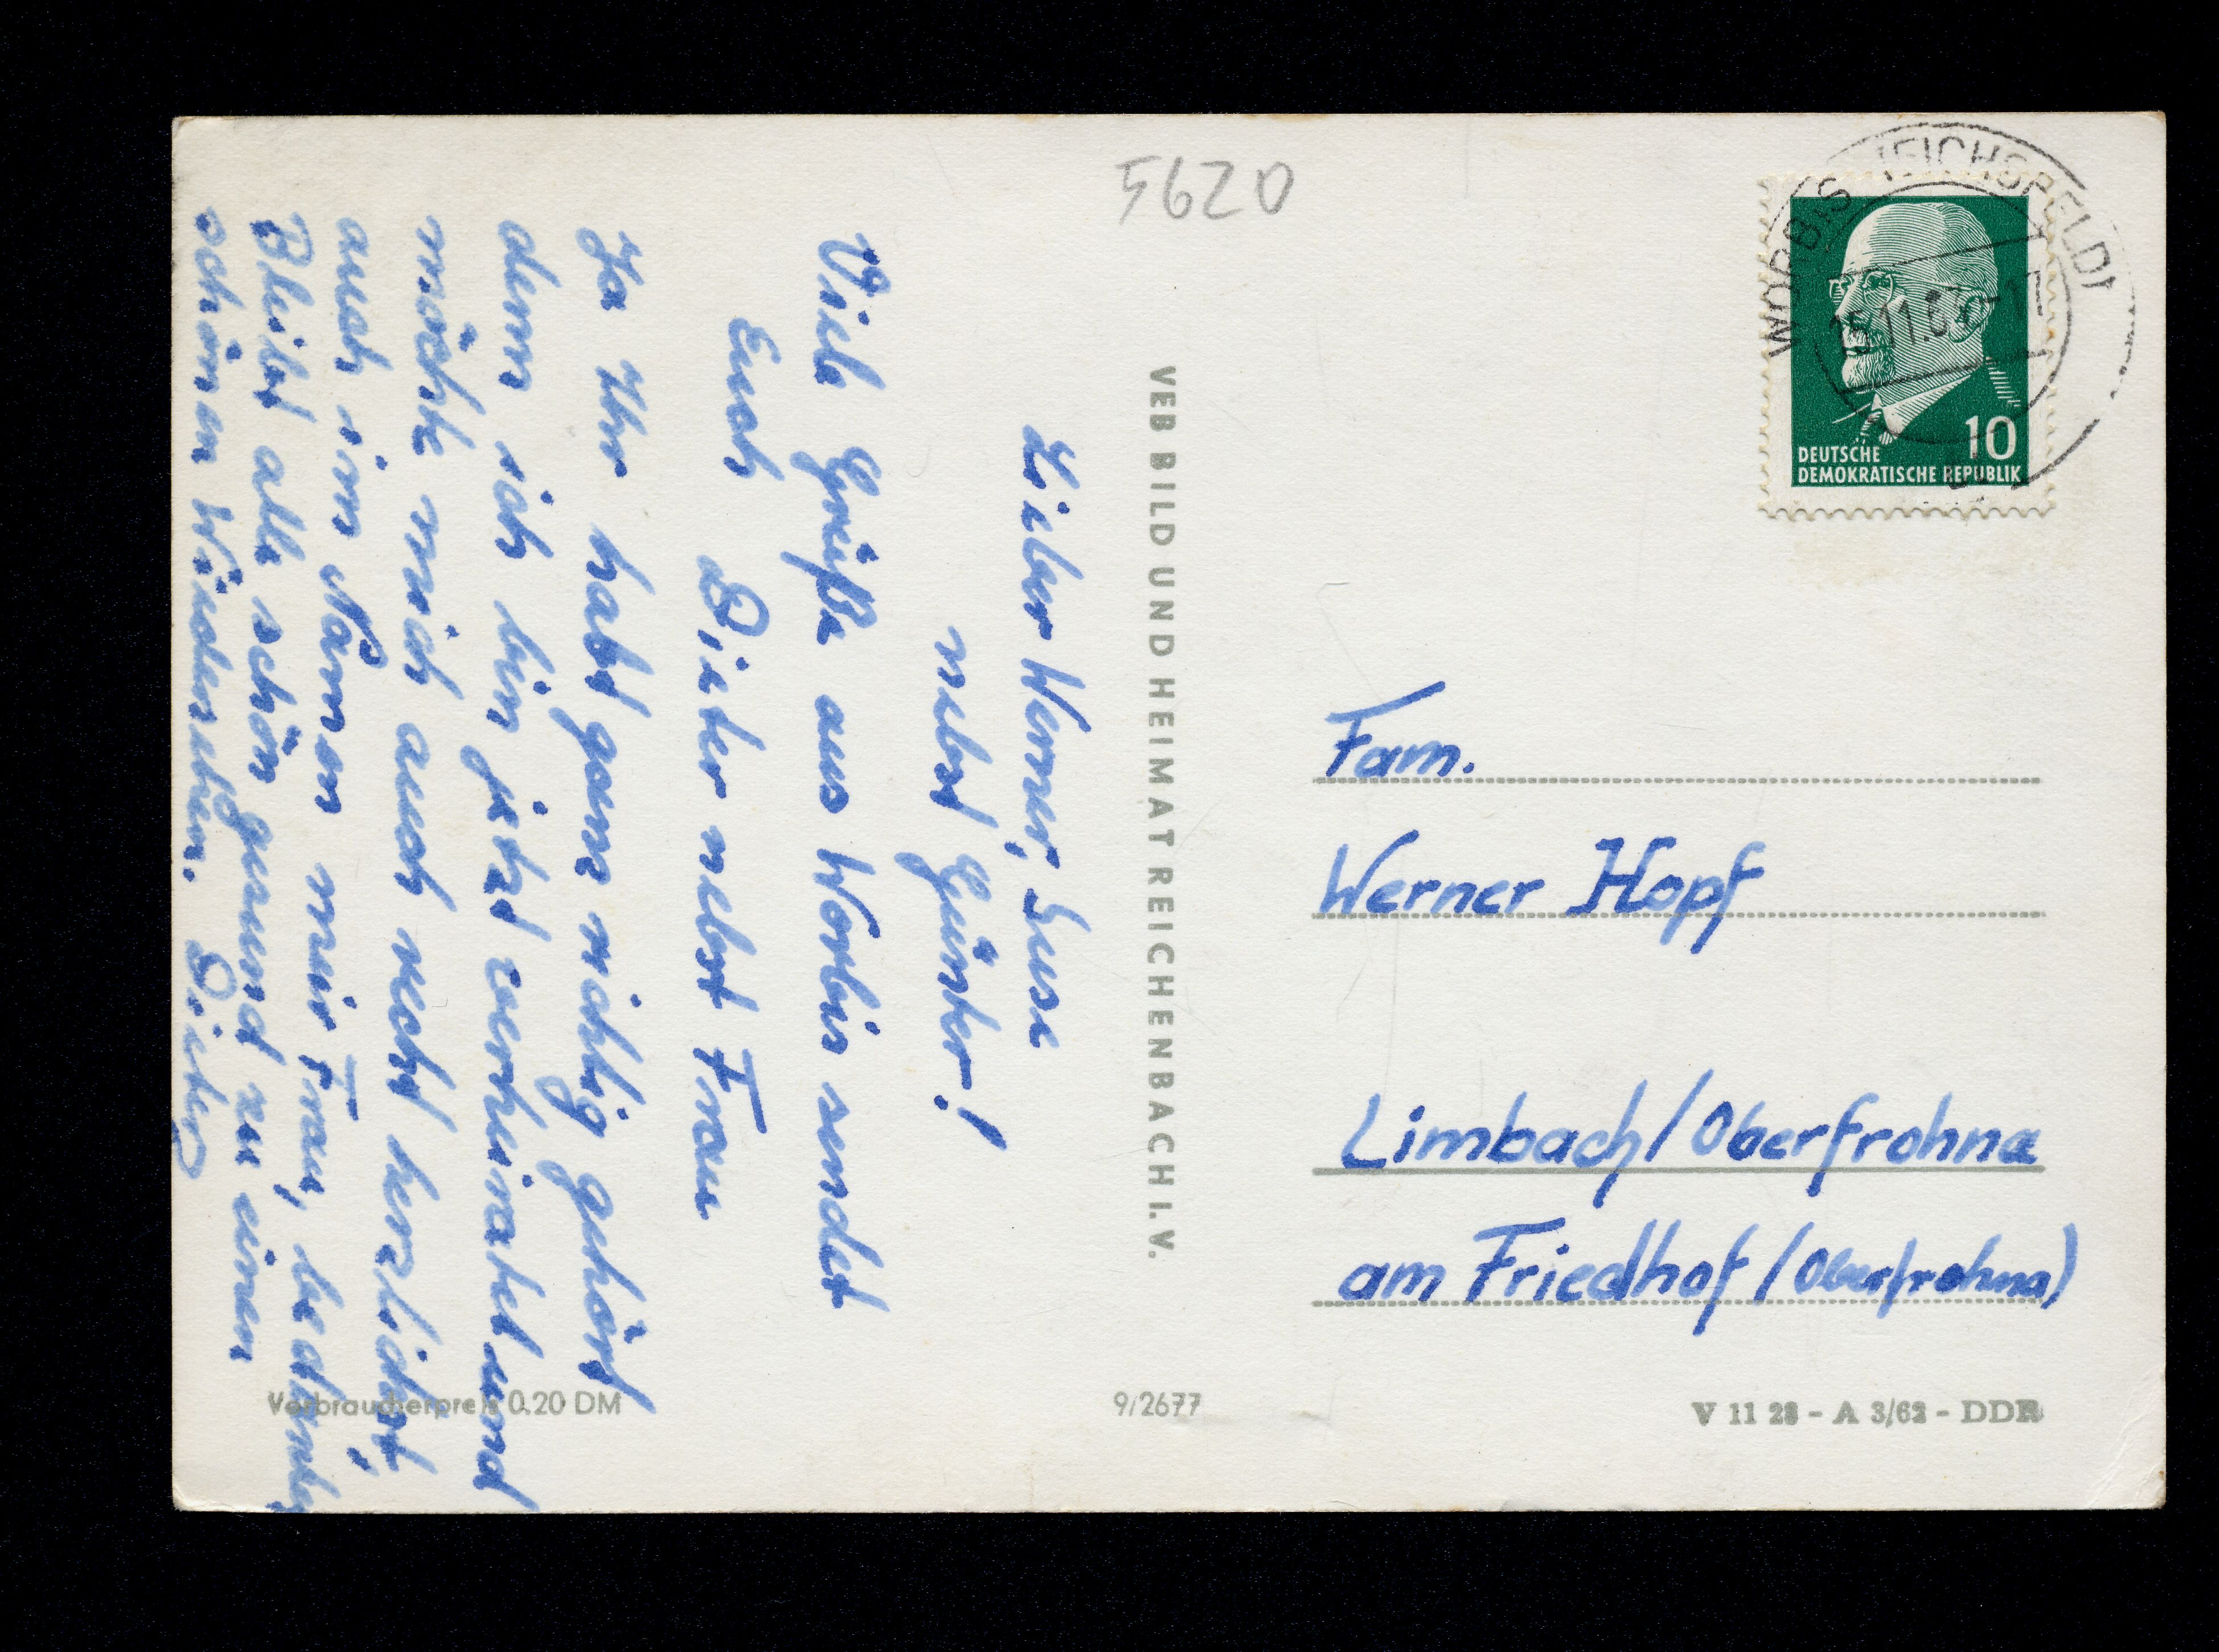 5620
WORBIS (EICHSFELD)
15.11.63-17
10
DEUTSCHE
DEMOKRATISCHE REPUBLIK
Lieber Werner, Suse
nebst Günter!
Viele Grüße aus Worbis sendet
Euch Dieter nebst Frau
Ja Ihr habt ganz richtig gehört
denn ich bin jetzt verheiratet und
möchte mich auch recht herzlichst,
auch im Namen meir Frau, bedanken
Bleibt alle schön gesund zu einen
schönen Wiedersehen. Dieter
VEB BILD UND HEIMAT REICHENBACH I. V.
Fam.
Werner Hopf
Limbach/Oberfrohna
am Friedhof/(Oberfrohna)
Verbraucherpreis 0.20 DM
9/2677
V 11 28 - A 3/62 - DDR